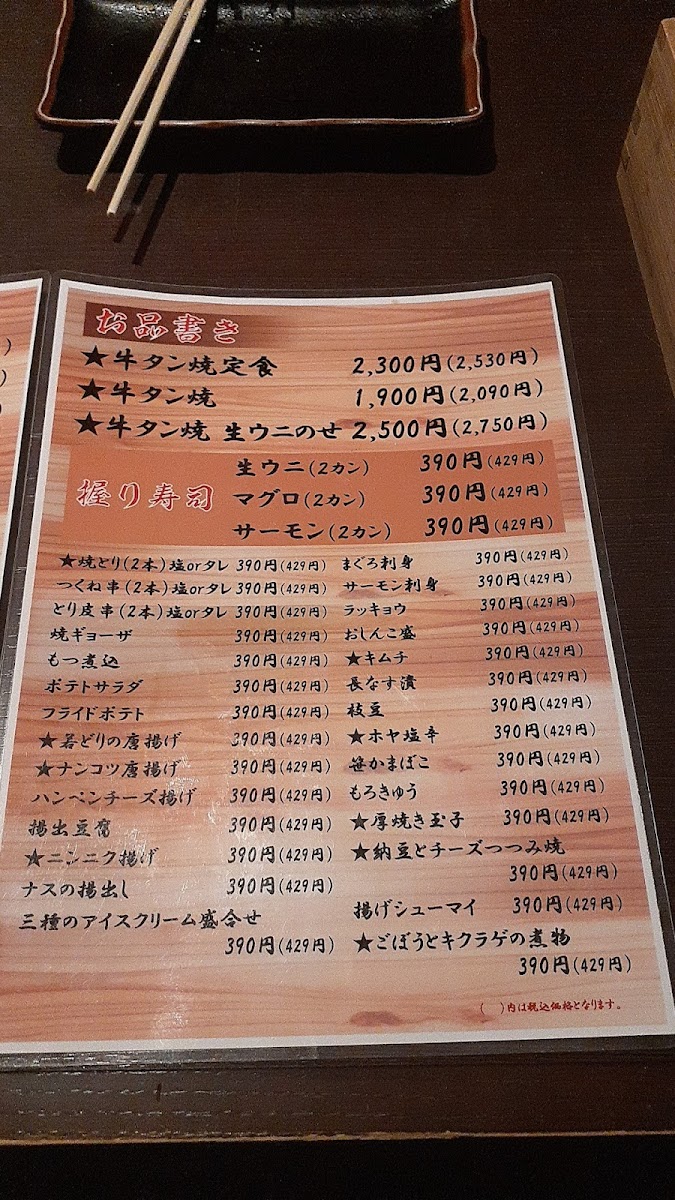 お品書き
★牛タン焼定食 2,300円(2,530円)
★牛タン焼 1,900円(2,090円)
★牛タン焼 生ウニのせ 2,500円(2,750円)
握り寿司
生ウニ(2カン) 390円(429円)
マグロ(2カン) 390円(429円)
サーモン(2カン) 390円(429円)
★焼とり(2本)塩orタレ 390円(429円)
つくね串(2本)塩orタレ 390円(429円)
とり皮串(2本)塩orタレ 390円(429円)
焼ギョーザ 390円(429円)
もつ煮込 390円(429円)
ポテトサラダ 390円(429円)
フライドポテト 390円(429円)
★若どりの唐揚げ 390円(429円)
★ナンコツ唐揚げ 390円(429円)
ハンペンチーズ揚げ 390円(429円)
揚出豆腐 390円(429円)
★ニンニク揚げ 390円(429円)
ナスの揚出し 390円(429円)
三種のアイスクリーム盛合せ
390円(429円)
まぐろ刺身 390円(429円)
サーモン刺身 390円(429円)
ラッキョウ 390円(429円)
おしんこ盛 390円(429円)
★キムチ 390円(429円)
長なす漬 390円(429円)
枝豆 390円(429円)
★ホヤ塩辛 390円(429円)
笹かまぼこ 390円(429円)
もろきゅう 390円(429円)
★厚焼き玉子 390円(429円)
★納豆とチーズつつみ焼
390円(429円)
揚げシューマイ 390円(429円)
★ごぼうとキクラゲの煮物
390円(429円)
( )内は税込価格となります。